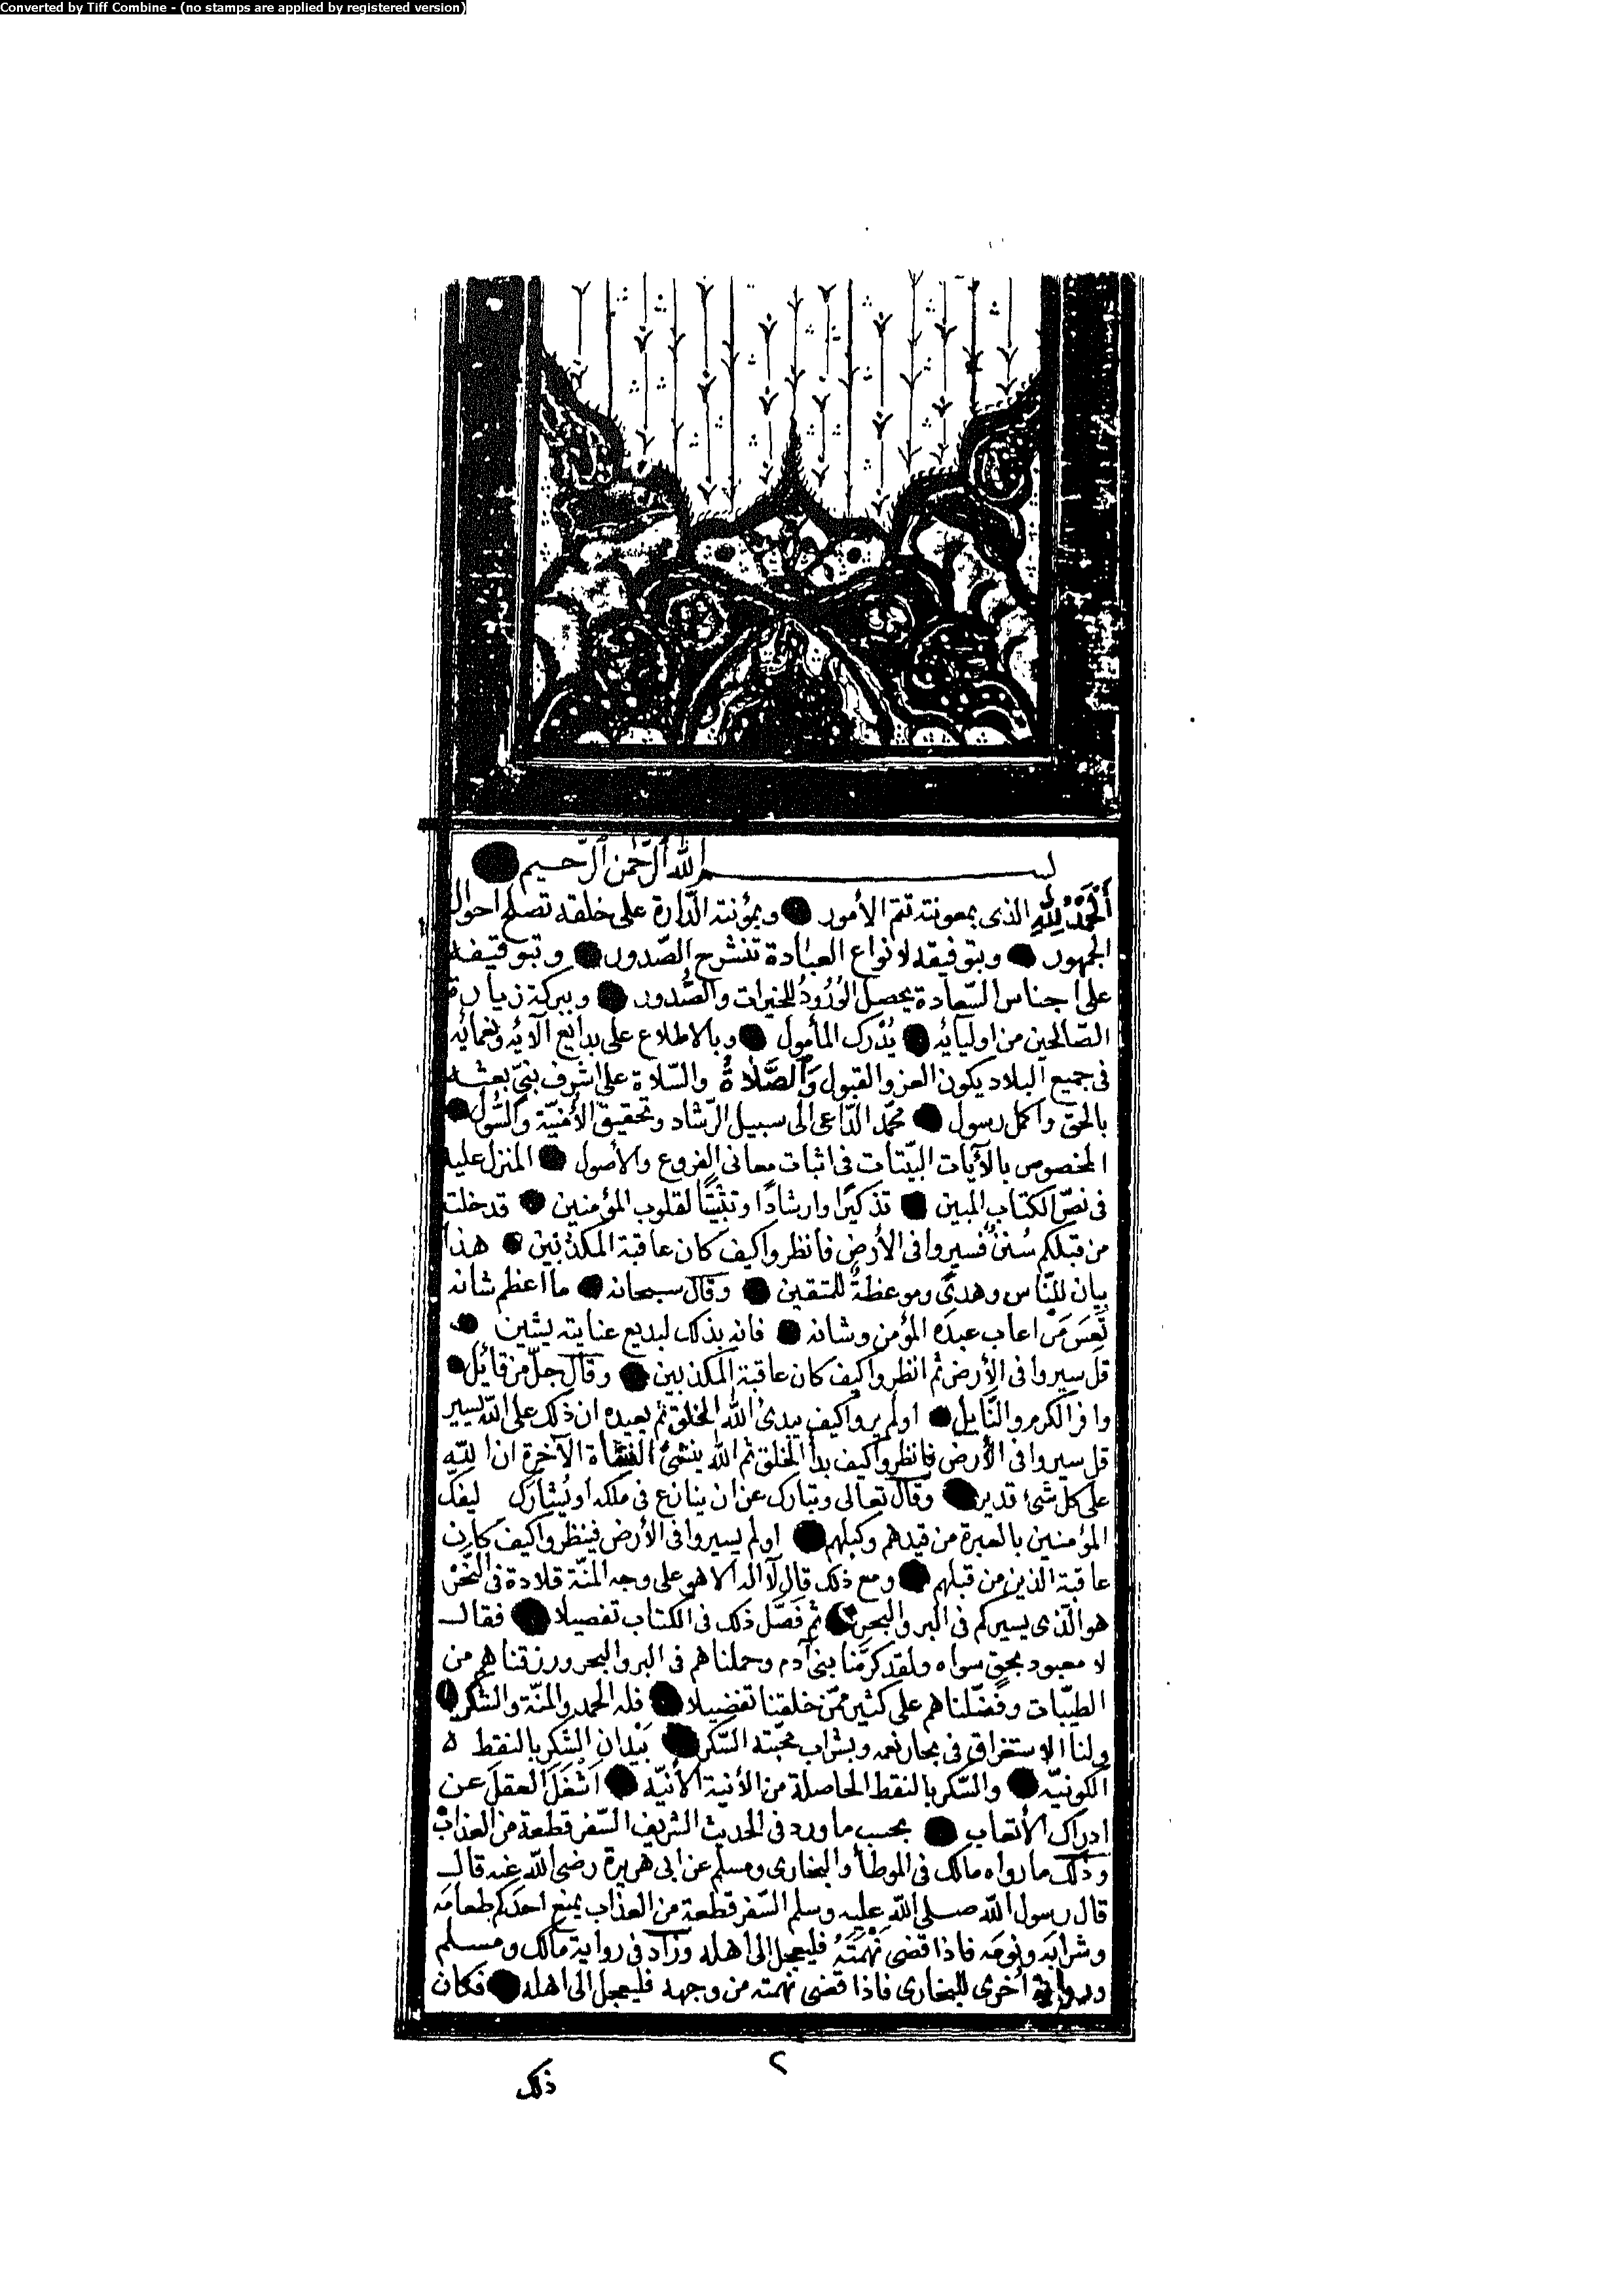 Converted by Tiff Combine - (no stamps are applied by registered version)
بسم الله الرّحمن الرّحيم
اَلْحَمْدُ لِلّٰهِ الذى بمعونته تتم الأمور وبمؤنته الدّارة على خلقه تصلح احوال
الجمهور وبتوفيقه لانواع العبادة تنشرح الصّدور وبتوقيفه
على اجناس السّعادة يحصل الوُرُودُ للخيرات والصُّدور وببركة زيارة
الصّالحين من اوليائه يُدْرك المأمول وبالاطلاع على بدايع آلائه ونعمائه
فى جميع البلاد يكون العز والقبول وَالصَّلاةُ والسّلاة على اشرف نبىّ بعثه
بالحق واكمل رسول محمّد الدّاعى الى سبيل الرّشاد وتحقيق الأمنيّة والسُّول
المخصوص بالآيات البيّنات فى اثبات معانى الفروع والأصول المنزل عليه
فى نصّ الكتاب المبين تذكيرًا وارشادًا وتثبيتًا لقلوب المؤمنين قد خلت
من قبلكم سُننٌ فسيروا فى الأرض فانظروا كيف كان عاقبة المكذبين هذا
بيان للنّاس وهدىً وموعظةٌ للمتقين وقال سبحانه ما اعظم شانه
تَعِسَ مَن اعاب عبدَه المؤمن وشانه فانه بذلك لبديع عنايته يشين
قل سيروا فى الأرض ثم انظروا كيف كان عاقبة المكذبين وقال جلّ من قائل
وافر الكرم والنّايل اولم يروا كيف يبدئ الله الخلق ثم يعيده ان ذلك على الله يسير
قل سيروا فى الأرض فانظروا كيف بدأ الخلق ثم الله ينشئ النشاة الآخرة ان الله
على كل شئ قدير وقال تعالى وتبارك عن ان ينازع فى ملكه او يُشارك ليفك
المؤمنين بالعبرة من قيدهم وكبلهم اولم يسيروا فى الأرض فينظروا كيف كان
عاقبة الذين من قبلهم ومع ذلك قال لا اله الا هو على وجه المنّة قلادة فى النّحْر
هو الّذى يسيركم فى البر والبحر ثم فصّل ذلك فى الكتاب تفصيلا فقال
لا معبود بحقٍ سواه ولقد كرّمنا بنى آدم وحملناهم فى البر والبحر ورزقناهم من
الطيّبات وفضّلناهم على كثير ممّن خلقنا تفضيلا فله الحمد والمنّة والشكر
ولنا الاستغراق فى بحار نعمه وبشراب محبّته السّكر بَيْدان الشكر بالنقط ه
الكونيّه والسّكر بالنقط الحاصلة من الأنية الأنيّه اَشْغَلَ العقلَ عن
ادراك الأتعاب بحسب ما ورد فى الحديث الشريف السّفر قطعة من العذاب
وذلك ما رواه مالك فى الموطأ والبخارى ومسلم عن ابى هريرة رضى الله عنه قال
قال رسول الله صلى الله عليه وسلم السّفر قطعة من العذاب يمنع احدكم طعامَه
وشرابَه ونومَه فاذا قضى نَهْمَتَهُ فليعجل الى اهله وزاد فى رواية مالك ومسلم
ورواية اخرى للبخارى فاذا قضى نهمته من وجهه فليعجل الى اهله فكان
٢
ذلك